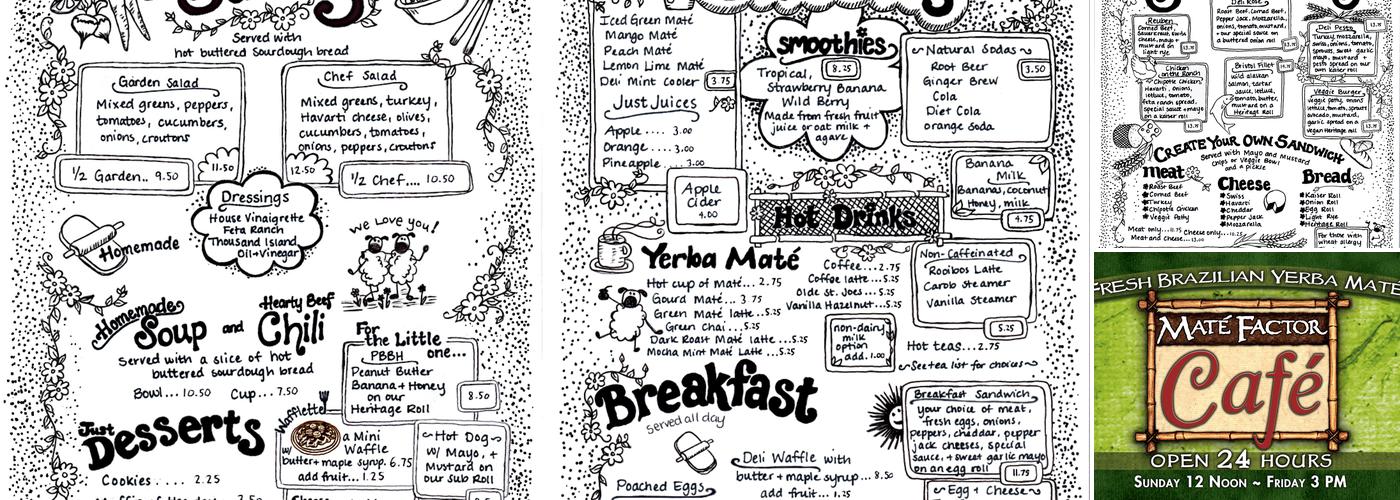 Served with
hot buttered Sourdough bread
Garden Salad
Mixed greens, peppers,
tomatoes, cucumbers,
onions, croutons
11.50
½ Garden.. 9.50
Chef Salad
Mixed greens, turkey,
Havarti cheese, olives,
cucumbers, tomatoes,
onions, peppers, croutons
12.50
½ Chef.... 10.50
Dressings
House Vinaigrette
Feta Ranch
Thousand Island
Oil+Vinegar
Homemade
We Love you!
Homemade
Soup and Hearty Beef Chili
Served with a slice of hot
buttered sourdough bread
Bowl... 10.50 Cup... 7.50
For
the Little
one...
PBBH
Peanut Butter
Banana + Honey
on our
Heritage Roll
8.50
Just
Desserts
Cookies .... 2.25
Wafflette
a Mini
Waffle
w/
butter + maple syrup. 6.75
add fruit... 1.25
~Hot Dog~
w/ Mayo, +
Mustard on
our Sub Roll
Iced Green Maté
Mango Maté
Peach Maté
Lemon Lime Maté
Deli Mint Cooler 3.75
Just Juices
Apple .... 3.00
Orange .... 3.00
Pineapple .... 3.00
Apple
Cider
4.00
Smoothies
8.25
Tropical,
Strawberry Banana
Wild Berry
Made from fresh fruit
juice or oat milk +
agave
~Natural Sodas~
Root Beer
3.50
Ginger Brew
Cola
Diet Cola
Orange Soda
Banana
Milk
Bananas, coconut
Honey, milk
4.75
Hot Drinks
Yerba Maté
Hot cup of Maté... 2.75
Gourd Maté... 3.75
Green Maté latte ..5.25
Green Chai ...5.25
Dark Roast Maté latte ...5.25
Mocha Mint Maté Latte ...5.25
Coffee...2.75
Coffee latte...5.25
Olde St. Joes...5.25
Vanilla Hazelnut...5.25
non-dairy
milk
option
add. 1.00
Non-Caffeinated
Rooibos Latte
Carob Steamer
Vanilla Steamer
5.25
Hot teas...2.75
~See tea list for choices~
Breakfast
served all day
Deli Waffle with
butter + maple syrup... 8.50
add fruit.. 1.25
Poached Eggs
Breakfast Sandwich
your choice of meat,
fresh eggs, onions,
peppers, cheddar, pepper
jack cheeses, special
sauce, + sweet garlic mayo
on an egg roll
11.75
~Egg + Cheese~
Deli Rose
Roast Beef, Corned Beef,
Pepper Jack, Mozzarella,
onions, tomato, mustard,
+ our special sauce on
a buttered onion roll
Reuben
Corned Beef,
Sauerkraut, Swiss
cheese, mayo +
mustard on
light rye
Deli Pesto
Turkey, mozzarella,
swiss, onions, tomato,
sprouts, sweet garlic
mayo, mustard +
pesto spread on our
own kaiser roll
Chicken
on the Ranch
Chipotle Chicken,
Havarti, onions,
lettuce, tomato,
feta ranch spread,
special sauce + mayo
on a kaiser roll
Bristol Fillet
wild alaskan
salmon, tartar
sauce, lettuce,
tomato, butter,
mustard on a
Heritage Roll
Veggie Burger
veggie patty, onions
lettuce, tomato, sprouts
avocado, mustard,
garlic spread on our
vegan Heritage roll
Create Your Own Sandwich
Served with Mayo and Mustard
Chips or Veggie Bowl
and a pickle
Meat
Roast Beef
Corned Beef
Turkey
Chipotle Chicken
Veggie Patty
Cheese
Swiss
Havarti
Cheddar
Pepper Jack
Mozzarella
Bread
Kaiser Roll
Onion Roll
Egg Roll
Light Rye
Heritage Roll
Meat only...11.75 Cheese only...10.25
Meat and Cheese...13.00
For those with
wheat allergy
Fresh Brazilian Yerba Maté
Maté Factor
Café
Open 24 Hours
Sunday 12 Noon ~ Friday 3 PM